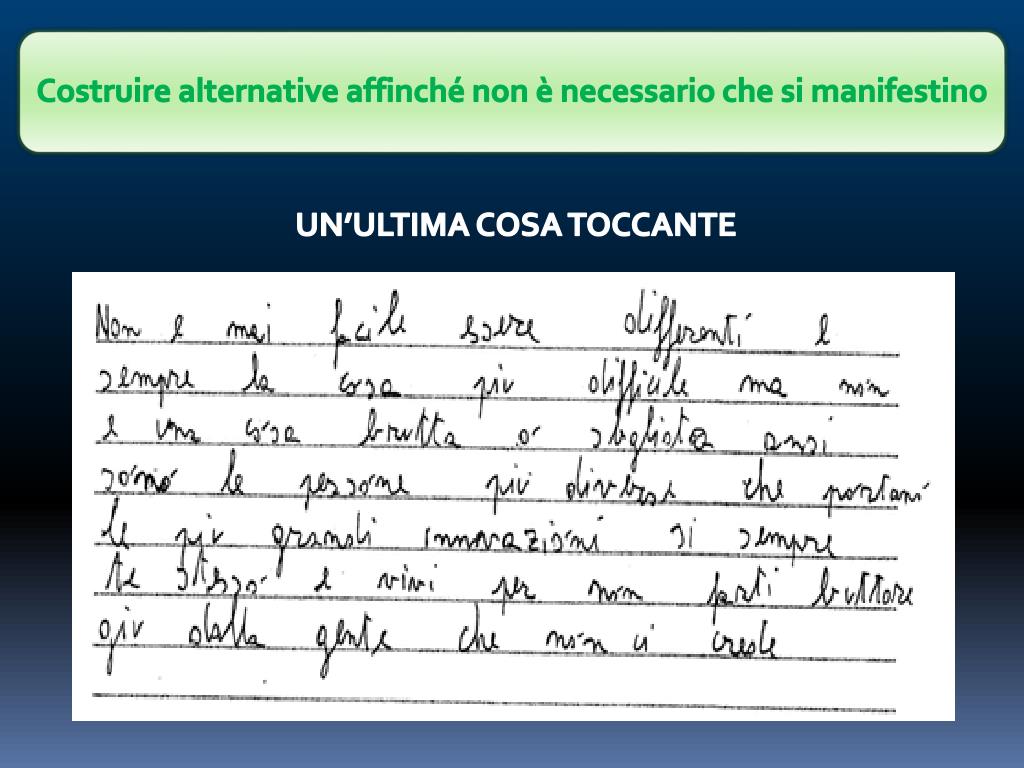 Costruire alternative affinché non è necessario che si manifestino
UN'ULTIMA COSA TOCCANTE
Non e mai facile essere differenti e
sempre la cosa piu difficile ma non
e una cosa brutta o sbgliata anzi
sono le persone piu diverse che portano
le piu grandi innovazioni si sempre
te stesso e vivi per non farti buttare
giu dalla gente che non ci crede